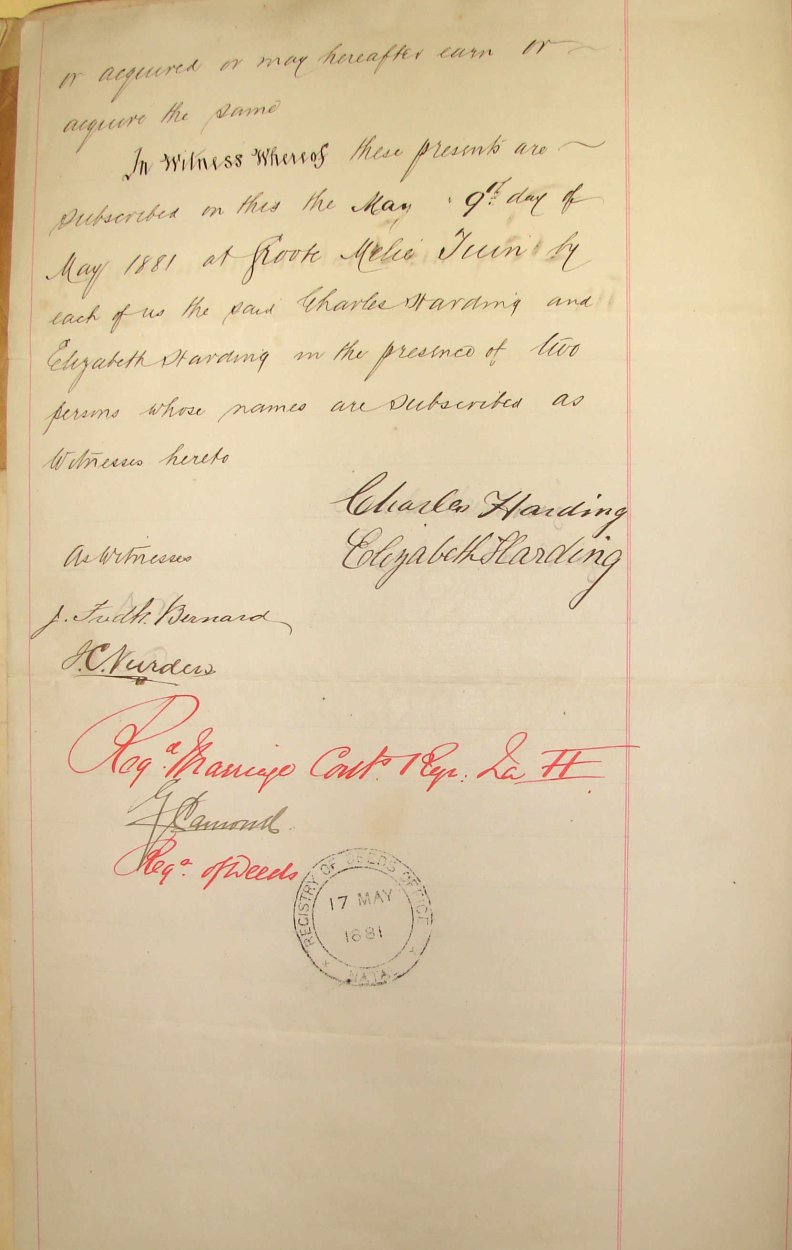 or acquired or may hereafter earn or
acquire the same
In Witness Whereof these presents are
subscribed on this the May 9th day of
May 1881 at Groote Melie Tuin by
each of us the said Charles Harding and
Elizabeth Harding in the presence of two
persons whose names are subscribed as
Witnesses hereto
Charles Harding
Elizabeth Harding
As Witnesses
J. Fredk. Bernard
Regd. Marriage Cont. Regr.
Regr. of Deeds
REGISTRY OF DEEDS OFFICE
17 MAY
1881
NATAL